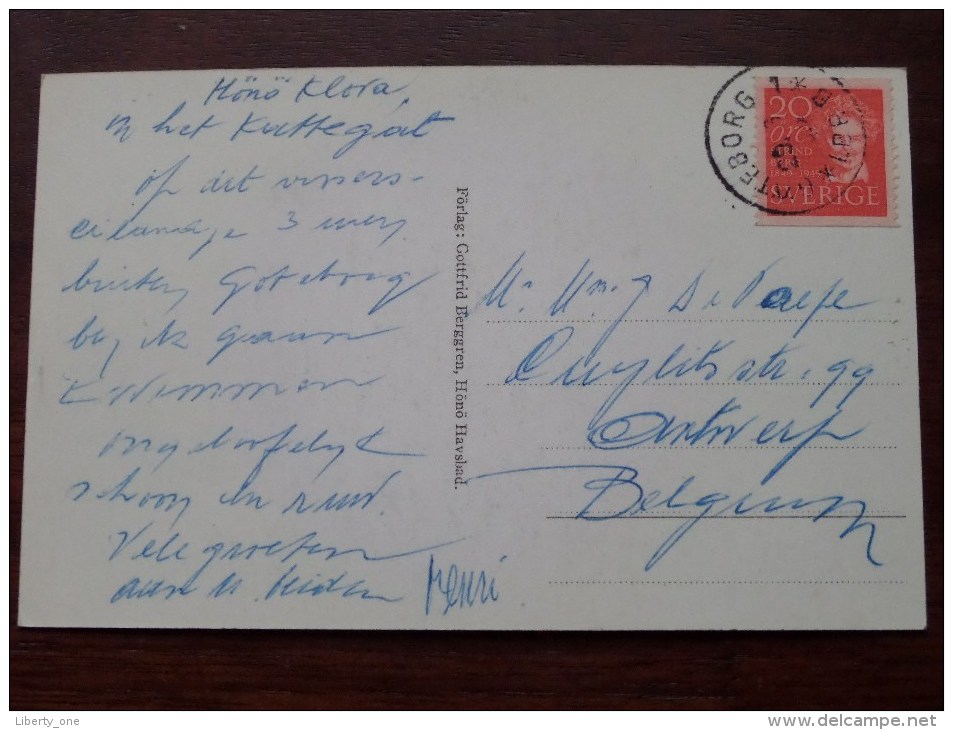 Hönö Klova,
in het Kattegat
op dit vissers-
eilandje 3 uren
buiten Goteborg
ben ik gaan
zwemmen
ongelooflijk
schoon en rust.
Vele groeten
aan u beiden
Henri
Förlag: Gottfrid Berggren, Hönö Havsbad.
GÖTEBORG 1
20
öre
STRIND
BERG
1849-1949
SVERIGE
Mr Mm. J De Paepe
99
Antwerp
Belgium
Liberty_one
delcampe.net